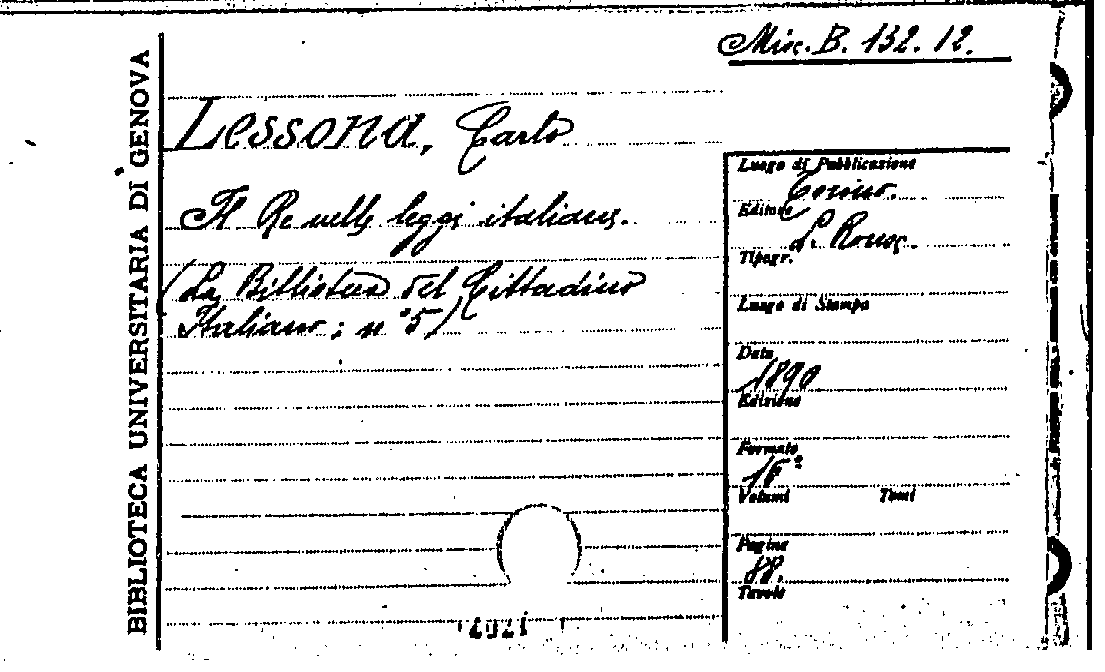 Misc. B. 132. 12.
BIBLIOTECA UNIVERSITARIA DI GENOVA
Lessona, Carlo
Il Re nelle leggi italiane.
(La Biblioteca del Cittadino
Italiano; n° 5)
Luogo di Pubblicazione
Torino.
Editore
L. Roux.
Tipogr.
Luogo di Stampa
Data
1890
Edizione
Formato
16°
Volumi Tomi
Pagine
88.
Tavole